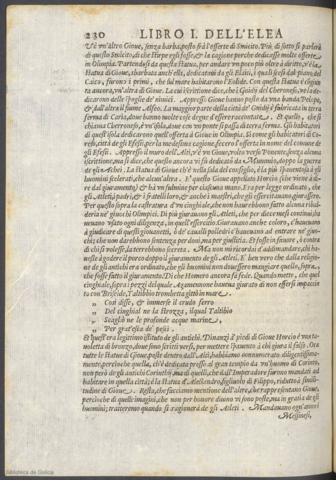 230 LIBRO I. DELL'ELEA
V'è un'altro Gioue, senza barba, posto fra l'offerte di Smicito. Più di sotto si parlerà
di questo Smicito, di che stirpe egli fosse, & la cagione perche dedicasse molte offerte
in Olimpia. Partendosi da questa statua, per andare vn poco più oltre à dritto, v'è la
statua di Gioue, sbarbata anch'ella, dedicataui da gli
furono i primi, che sul mare hebbero il falcone. Con questa statua è
vn'altra di Gioue. La cui iscrittione dice, che i Gnidij del Cherroneso, ve la dedi
carono delle spoglie de' nimici. Appresso Gioue hanno posto da vna banda Pelope,
& dall'altra il fiume Alfeo. La maggior parte della città de' Gnidij è fabricata in terra
ferma di Caria, doue hanno molte cose degne d'essere raccontate, & quello, che si
chiama Cherroneso, è vn'isola, doue con vn ponte si passa di terra ferma. Gli habitatori
di quest'isola dedicarono quelle offerte à Gioue in Olimpia. Si come gli habitatori di Co-
resso, città de gli Efesij, per la medesima cagione, fecero l'offerta in nome del comune de
gli Efesij. Appresso il muro dell'Alti, v'è vn Gioue, volto verso Ponente, senza alcuna
iscrittione, ma si dice, che questo ancora vi fù dedicato da Mummio, doppo la guerra
de gli Achei. La statua di Gioue ch'è nella sala del consiglio, è la più spauenteuole à gli
huomini sederati, che alcun'altra. E' questo Gioue appellato Horcio (che viene à di-
re dal giuramento) & hà vn fulmine per ciascuna mano. Era per legge ordinato, che
gli Atleti, i padri, & i fratelli loro, & anche i maestri, che gli essercitauano giurassero.
Per questo sopra le castrature d'vn cinghiale, che non harebbono fatto alcuna riba-
deria ne' giuochi Olimpici. Di più giurauano gli Atleti, che per diece mesi continui
uano vsato ogni diligenza, in quell'essercitio. Giurauano anche coloro, che haueano
à giudicare di questi giouanetti, ò de' caualli polledri c'haueuano ad entrare ne' giuo-
chi; che non darebbono sentenza per doni, ma per giustitia, & fosse in fauore, ò contra
di chi si volesse, la terrebbono secreta. Ma non mi ricordai d'addimandare, che
uesse à godere il porco doppo il giuramento de gli Atleti. E ben vero che dalla religio-
ne de gli antichi era ordinato, che gli huomini non douessero mangiare quello, sopra,
che fosse fatto il giuramento. Il che Homero ancora fa fede. Quando mette, che quel
cinghiale, sopra i pezzi del quale Agamennone haueua giurato di non essersi impaccia
to con Briseide, Taltibio trombetta gittò in mare
„ Così disse, & immerse il crudo ferro
„ Del cinghial ne la strozza, ilqual Taltibio
„ Scagliò ne le profonde acque marine,
„ Per grat'esca de' pesci.
E quest'era legittimo istituto de gli antichi. Dinanzi à' piedi di Gioue Horcio è vna ta-
uoletta di bronzo, doue sono scritti versi, per mettere spauento à chi giura il falso. Ora
tutte le statue di Gioue, poste dentro dall'Alti, habbiamo annouerato diligentissima-
mente, percioche quella, ch'è dedicata presso al gran tempio da vn'huomo di Corinto,
non però de gli antichi Corinthij, ma di quelli, che dall'Imperadore furono mandati ad
habitare in quella città; è la statua di Alessandro, figliuolo di Filippo, ridotta à simili-
tudine di Gioue. Resta, che facciamo mentione dell'altre, che rappresentano Gioue,
percioche di quelle imagini, che non per honore diuino vi sono poste, ma in gratia de gli
huomini; tratteremo quando si ragionerà de gli Atleti. Mandauano ogni anno i
Messinesi,
Biblioteca de Galicia